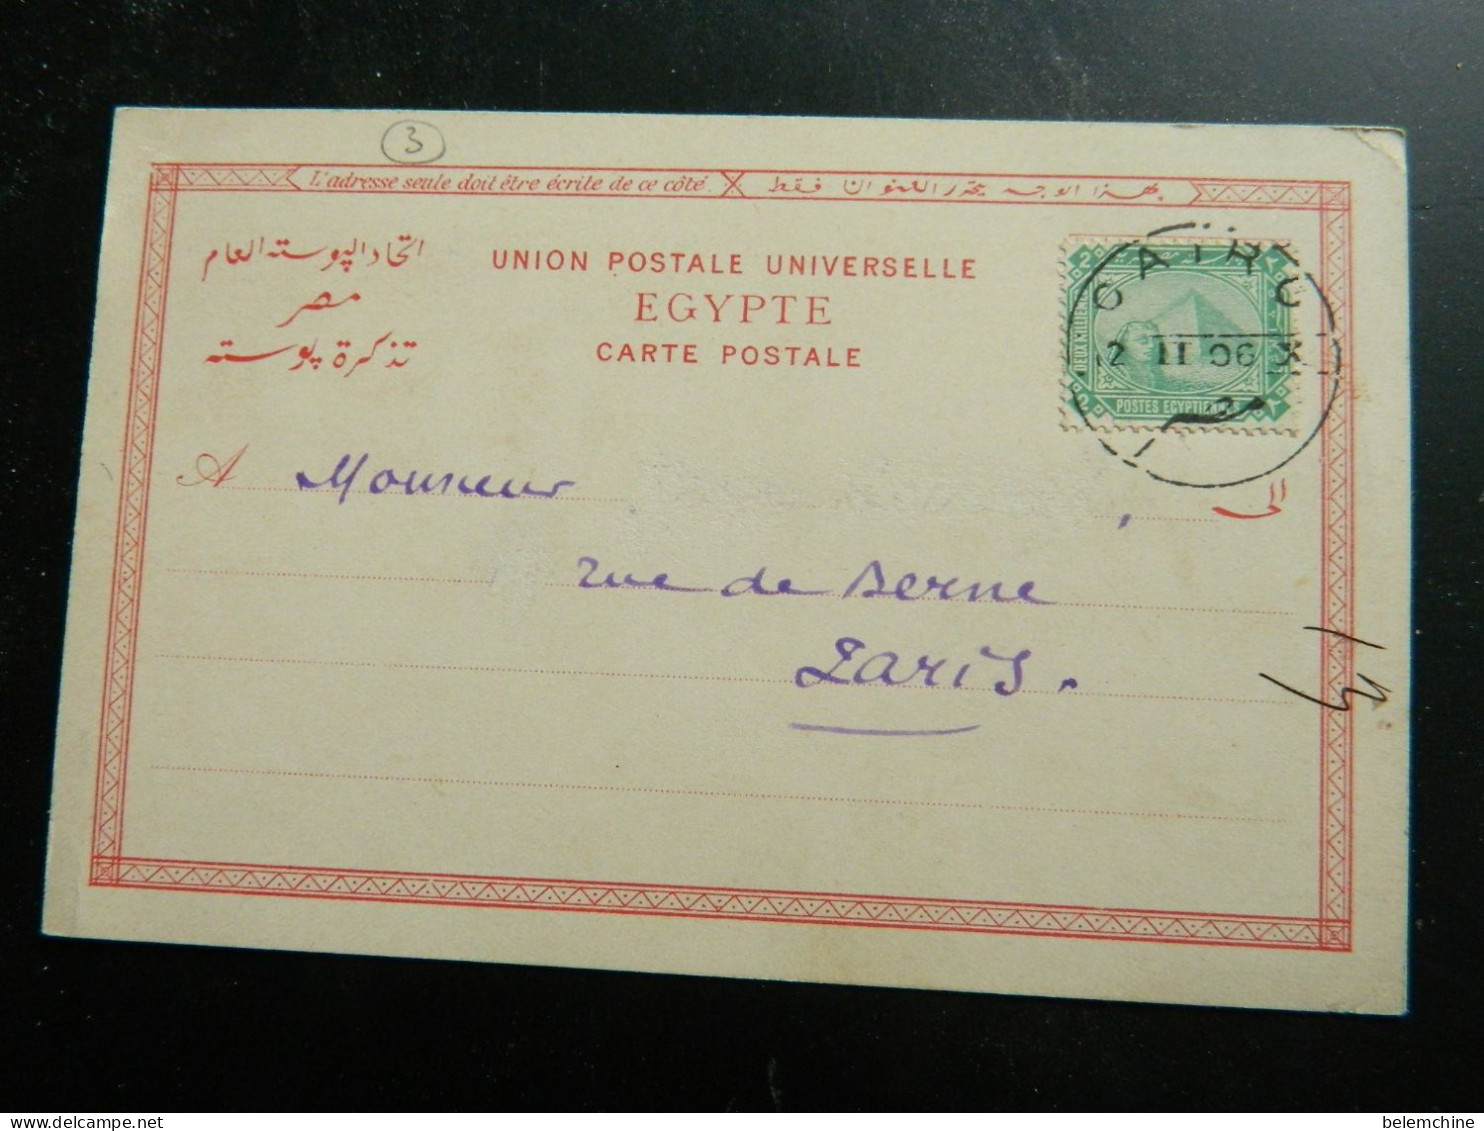 3
L'adresse seule doit être écrite de ce côté. بهذا الوجه يحرر العنوان فقط
اتحاد البوسته العام
مصر
تذكرة بوسته
UNION POSTALE UNIVERSELLE
EGYPTE
CARTE POSTALE
CAIRO
12 II 06 X
POSTES EGYPTIENNES
A Monsieur , الى
rue de Berne
Paris.
belemchine